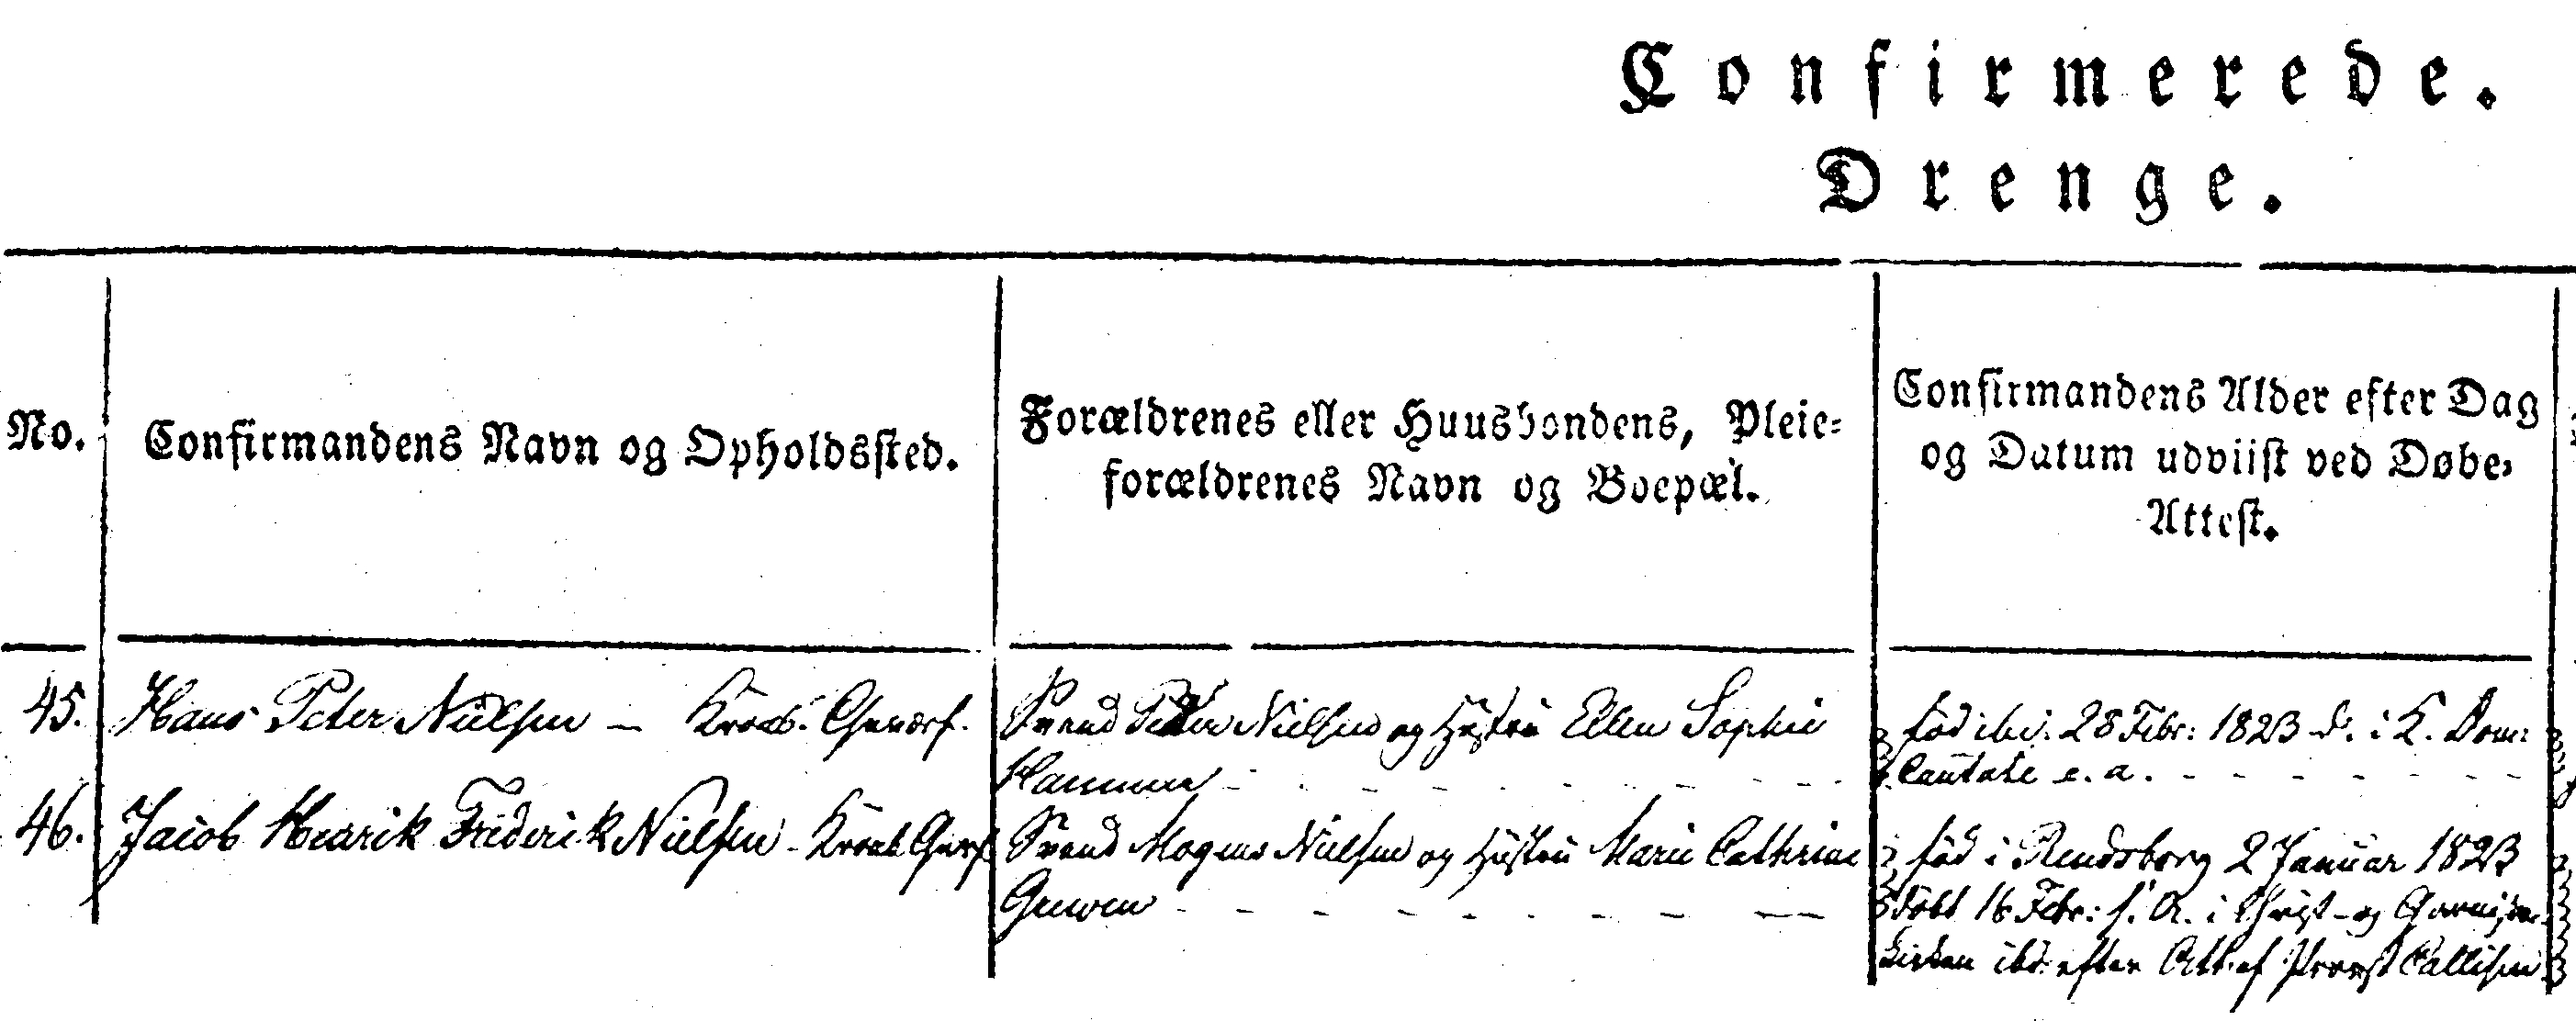 Confirmerede.
Drenge.
No.
Confirmandens Navn og Opholdssted.
Forældrenes eller Huusbondens, Pleie-
forældrenes Navn og Boepæl.
Confirmandens Alder efter Dag
og Datum udviist ved Døbe-
Attest.
45. Hans Peter Nielsen —
Svend Peter Nielsen og Hustru Ellen Sophie
Hammer
fød ibid. 28 Febr: 1823 d. i K. Dom:
Cantate e. a.
46. Jacob Henrik Frederik Nielsen
Svend Mogens Nielsen og Hustru Marie Cathrine
fød i Rendsborg 2 Januar 1823
døbt 16 Febr: s. A. i Christ- og Garnisons
Kirken ibd. efter Att. af Provst Callisen